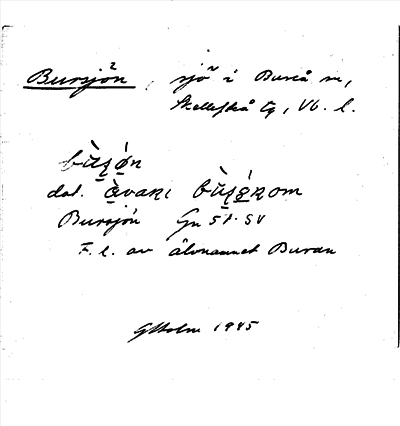 Bursjön, sjö i Bureå sn,
Skellefteå tg, Vb. l.
bùʂø̀n
dat. àvanɩ bùʂø̀nom
Bursjön Gn 57. SV
F. l. av älvnamnet Buran
GHolm 1945